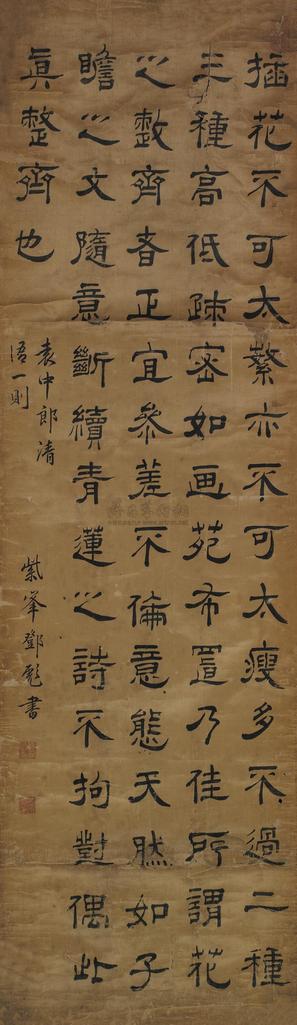 插花不可太繁亦不可太瘦多不過二種
三種高低疎密如画苑布置乃佳所謂花
之整齊者正宜參差不倫意態天然如子
瞻之文隨意斷續青蓮之詩不拘對偶此
真整齊也
袁中郎清
語一則
紫峯鄧彪書